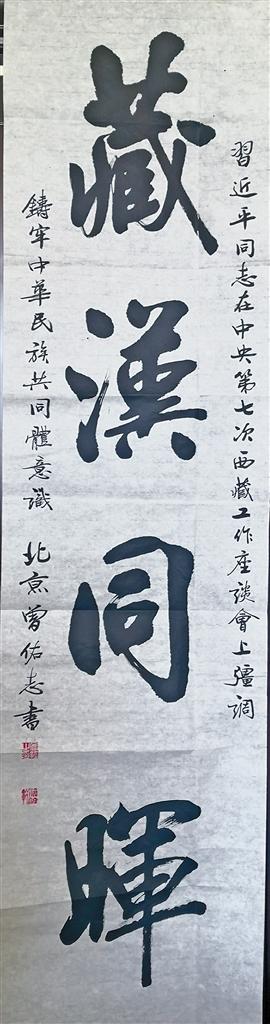 習近平同志在中央第七次西藏工作座談會上彊調
藏漢同暉
鑄牢中華民族共同體意識
北京曾佑志書